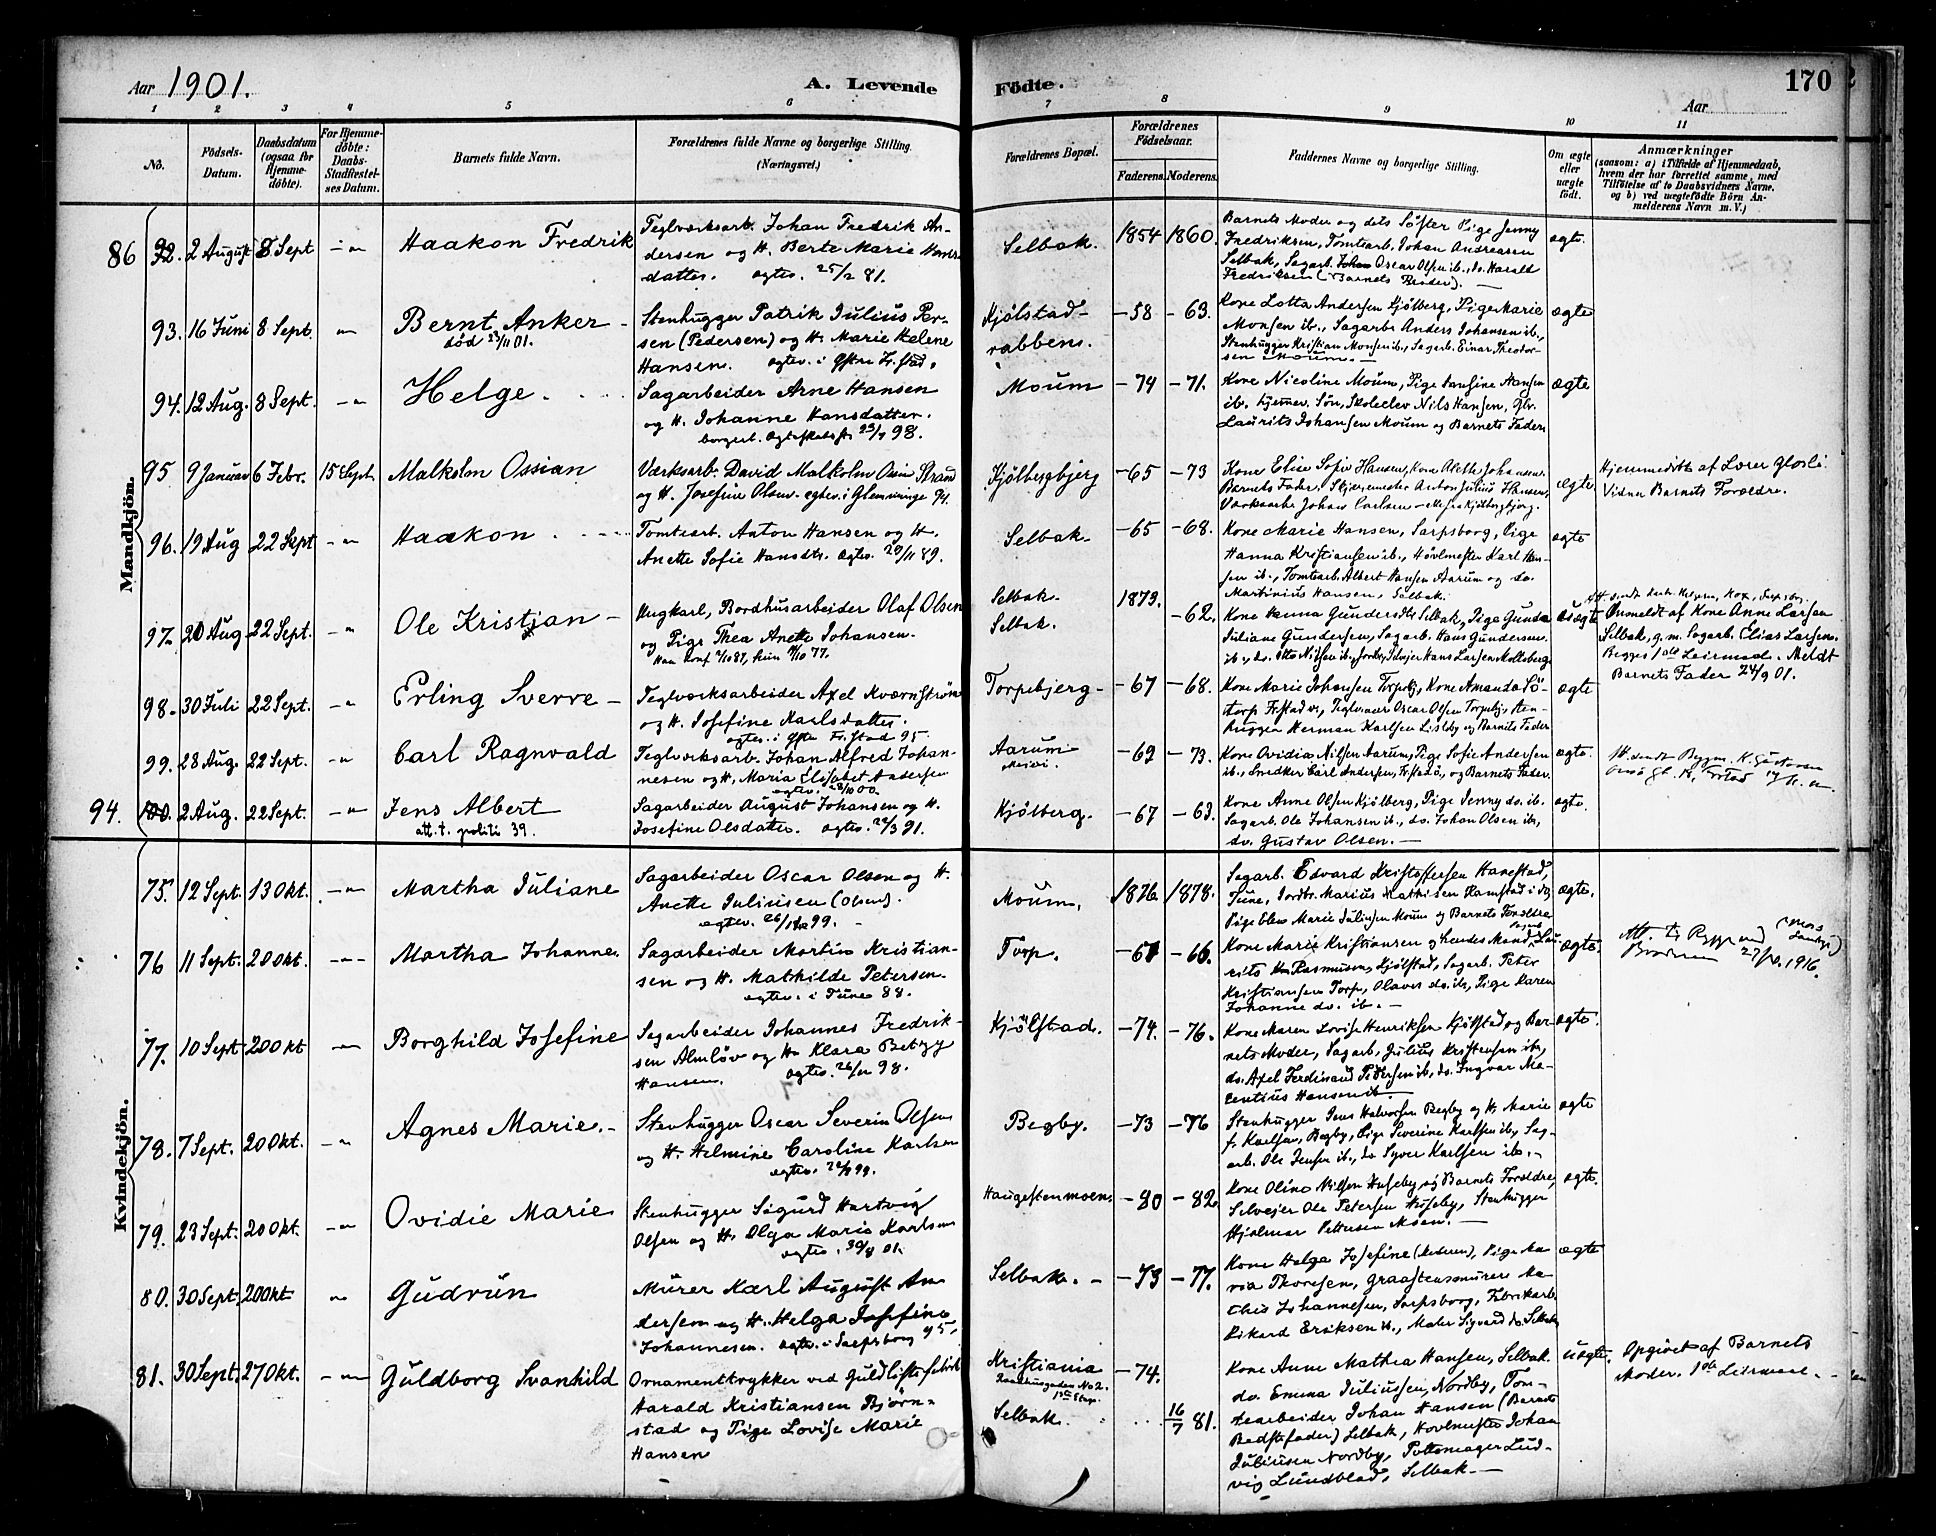 Aar 1901.
A. Levende
Födte.
170
Aar
1 2 3 4 5 6 7 8 9 10 11
No.
Födsels-
Datum.
Daabsdatum
(ogsaa for
Hjemme-
döbte).
For Hjemme-
döbte:
Daabs-
Stadfæstel-
ses Datum.
Barnets fulde Navn.
Forældrenes fulde Navne og borgerlige Stilling.
(Næringsvei.)
Forældrenes Bopæl.
Forældrenes
Födselsaar.
Faderens. Moderens.
Faddernes Navne og borgerlige Stilling.
Om ægte
eller
uægte
födt.
Anmærkninger
(saasom: a) i Tilfælde af Hjemmedaab,
hvem der har forrettet samme, med
Tilföielse af to Daabsvidners Navne,
og b) ved uægtefödte Börn An-
melderens Navn m. V.)
Mandkjön.
86 92. 2 August 8 Sept Haakon Fredrik
Teglværksarb. Johan Fredrik An-
dersen og H. Berte Marie
datter. ægtev. 25/2 81.
Selbak. 1854 1860.
Barnets Moder og dets Söster Pige Jenny
Fredriksen, Tomtearb. Johan Andreasen
Selbak, Sagarb. Oscar Olsen ib., do. Harald
Fredriksen (Barnets Broder). —
ægte.
93. 16 Juni 8 Sept. Bernt Anker —
död 01.
Stenhugger Patrik Julius Per-
sen (Pedersen) og H. Marie Helene
Hansen.
Kjölstad-
rabben. —58 —63.
Kone Lotta Andersen Kjölberg, Pige Marie
Monsen ib., Sagarb. Anders Johansen ib.,
Stenhugger Kristian Monsen ib., Sagarb. Einar Theodor-
sen Moum. —
ægte
94. 12 Aug. 8 Sept. Helge.
Sagarbeider Arne Hansen
og H. Johanne Hansdatter.
Moum —74 —71.
Kone Nicoline Moum, Pige Hansen
ib. Sön, Skoleelev Nils Hansen,
Laurits Johansen Moum og Barnets Fader
ægte
95 9 Januar 6 Febr. 15 Sept. Malkolm Ossian
Værksarb. David Malkolm Strand
og H. Josefine Olsen. ægtev. i Glemminge 94.
Kjölbergbjerg —65 —73
Kone Elise Sofie Hansen, Kone Johansen.
Barnets Fader, Anton Julius Hansen,
Værksarb. Johan Carlsen
ægte
Hjemmedöbt af Lærer
Vidner Barnets Forældre.
96. 19 Aug 22 Sept Haakon.
Tomtearb. Anton Hansen og H.
Anette Sofie Hansdtr. ægtev. 29/11 89.
Selbak —65 —68.
Kone Marie Hansen, Sarpsborg, Pige
Hanna Kristiansen ib., Hövlmester Karl Han-
sen ib., Tomtearb. Albert Hansen Aarum og do.
Martinius Hansen, Selbak.
ægte
97. 20 Aug 22 Sept. Ole Kristian —
Ungkarl, Bordhusarbeider Olaf Olsen
og Pige Thea Anette Johansen.
Selbak. 1873.
Selbak. —62.
Kone Selbak, Pige Gunda
Juliane Gundersen, Sagarb. Hans Gundersen
ib., do. Otto Nilsen ib., Hans Larsen
uægte
Anmeldt af Kone Anne Larsen
Selbak, g. m. Sagarb. Elias Larsen.
Begges 1ste Leiermaal. Meldt
Barnets Fader 24/9 01.
98. 30 Juli 22 Sept. Erling Sverre —
Teglværksarbeider Axel Kværnström
og H. Josefine Karlsdatter.
ægtev. i Fr.stad 95
Torpebjerg —67 —68.
Kone Marie Johansen Torpebj., Kone Amanda
torp Fr.stad, Oscar Olsen Torpebj.,
Herman Karlsen Lisleby og Barnets Fader
ægte
99. 28 Aug. 22 Sept. Carl Ragnvald
Teglværksarb. Johan Alfred Johan-
nesen og H. Maria Elisabet Andersen
Aarum —69 —73.
Kone Ovidia Nilsen Aarum, Pige Sofie Andersen
ib., Snedker Carl Andersen, og Barnets Fader.
ægte.
94. 100. 2 Aug. 22 Sept. Jens Albert
att. t. politi 39.
Sagarbeider August Johansen og H.
Josefine Olsdatter. ægtev. 91.
Kjölberg. —67 —63.
Kone Anne Olsen Kjölberg, Pige Jenny do. ib.
Sagarb. Ole Johansen ib., do. Johan Olsen ib.,
do. Gustav Olsen. —
ægte.
Kvindekjön.
75. 12 Sept. 13 Okt. Martha Juliane
Sagarbeider Oscar Olsen og H.
Anette Juliusen (Olsen).
Moum, 1876 1878.
Sagarb. Edvard Kristoffersen Hanestad,
Tune, Marius Mathisen
Pige Ellen Marie Juliusen Moum og Barnets Forældre
ægte.
76 11 Sept. 20 Okt. Martha Johanne.
Sagarbeider Martin Kristian-
sen og H. Mathilde Petersen.
ægtev. i Tune 88.
Torp. —61 —66.
Kone Marie Kristiansen og hendes Mand, Lau-
rits Rasmussen, Kjölstad, Sagarb. Peter
Kristiansen Torp, Olaves do. ib., Pige Karen
Johanne do. ib. —
ægte.
1916.
77. 10 Sept. 20 Okt Borghild Josefine
Sagarbeider Johannes Fredrik-
sen Almlöv og H. Klara Betzy
Hansen. ægtev. 98.
Kjölstad. —74. —76.
Kone Maren Lovise Henriksen Kjölstad og Bar-
nets Moder, Sagarb. Julius Kristensen ib.,
do. Axel Ferdinand Pedersen ib., do. Ingvar Ma-
centius Hansen ib.
ægte.
78. 7 Sept. 20 Okt. Agnes Marie. —
Stenhugger Oscar Severin Olsen
og H. Helmine Caroline Karlsen
Begby. —73 —76
Stenhugger Jens Halvorsen Begby og H. Marie
f. Karlsen, Begby, Pige Severine Karlsen ib., Sag-
arb. Ole Jensen ib., do Syver Karlsen ib. —
ægte
79. 23 Sept. 20 Okt. Ovidie Marie
Stenhugger Sigurd Hartvig
Olsen og H. Olga Marie Karlsen
Haugestenmoen. —80 —82
Kone Oline Nilsen Huseby og Barnets Forældre,
Selveier Ole Petersen Huseby, Stenhugger
Hjalmar Pettersen Moen. —
ægte.
80. 30 Sept. 20 Okt Gudrun
Murer Karl August An-
dersen og H. Helga Josefine
Johannesen. ægtev. i Sarpsborg 95.
Selbak. — —73 —77.
Kone Helga Josefine (Moderen), Pige Ma-
ria Thoresen, Graastensmurer Ma-
this Johannesen, Sarpsborg, Fabrikarb.
Rikard Eriksen ib., Maler Sigvard do. Selbak
ægte
81. 30 Sept. 27 Okt. Guldborg Svanhild
Ornamenttrykker ved Guldlistefabrik
Harald Kristiansen Björn-
stad og Pige Lovise Marie
Hansen
Kristiania —74.
Raadhusgaden No 2.
Selbak. 16/7 81.
Kone Anne Mathea Hansen, Selbak.
do. Emma Juliussen, Nordby, Tom-
tearbeider Johan Hansen (Barnets
Bedstefader) Selbak, Hövlmester Johan
Juliusen Nordby, Pottemager Lud-
vig Lundblad, Selbak. —
uægte.
Opgivet af Barnets
Moder. 1ste Leiermaal. —